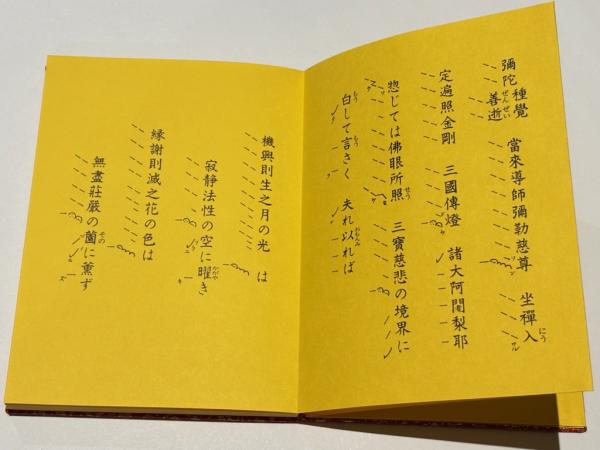 彌陀種覺 當來導師彌勒慈尊 坐禪入
善逝
定遍照金剛 三國傳燈 諸大阿闍梨耶
惣じては佛眼所照 三寶慈悲の境界に
白して言さく 夫れ以れば
機興則生之月の光は
寂静法性の空に曜き
縁謝則滅之花の色は
無盡莊嚴の薗に薫ず